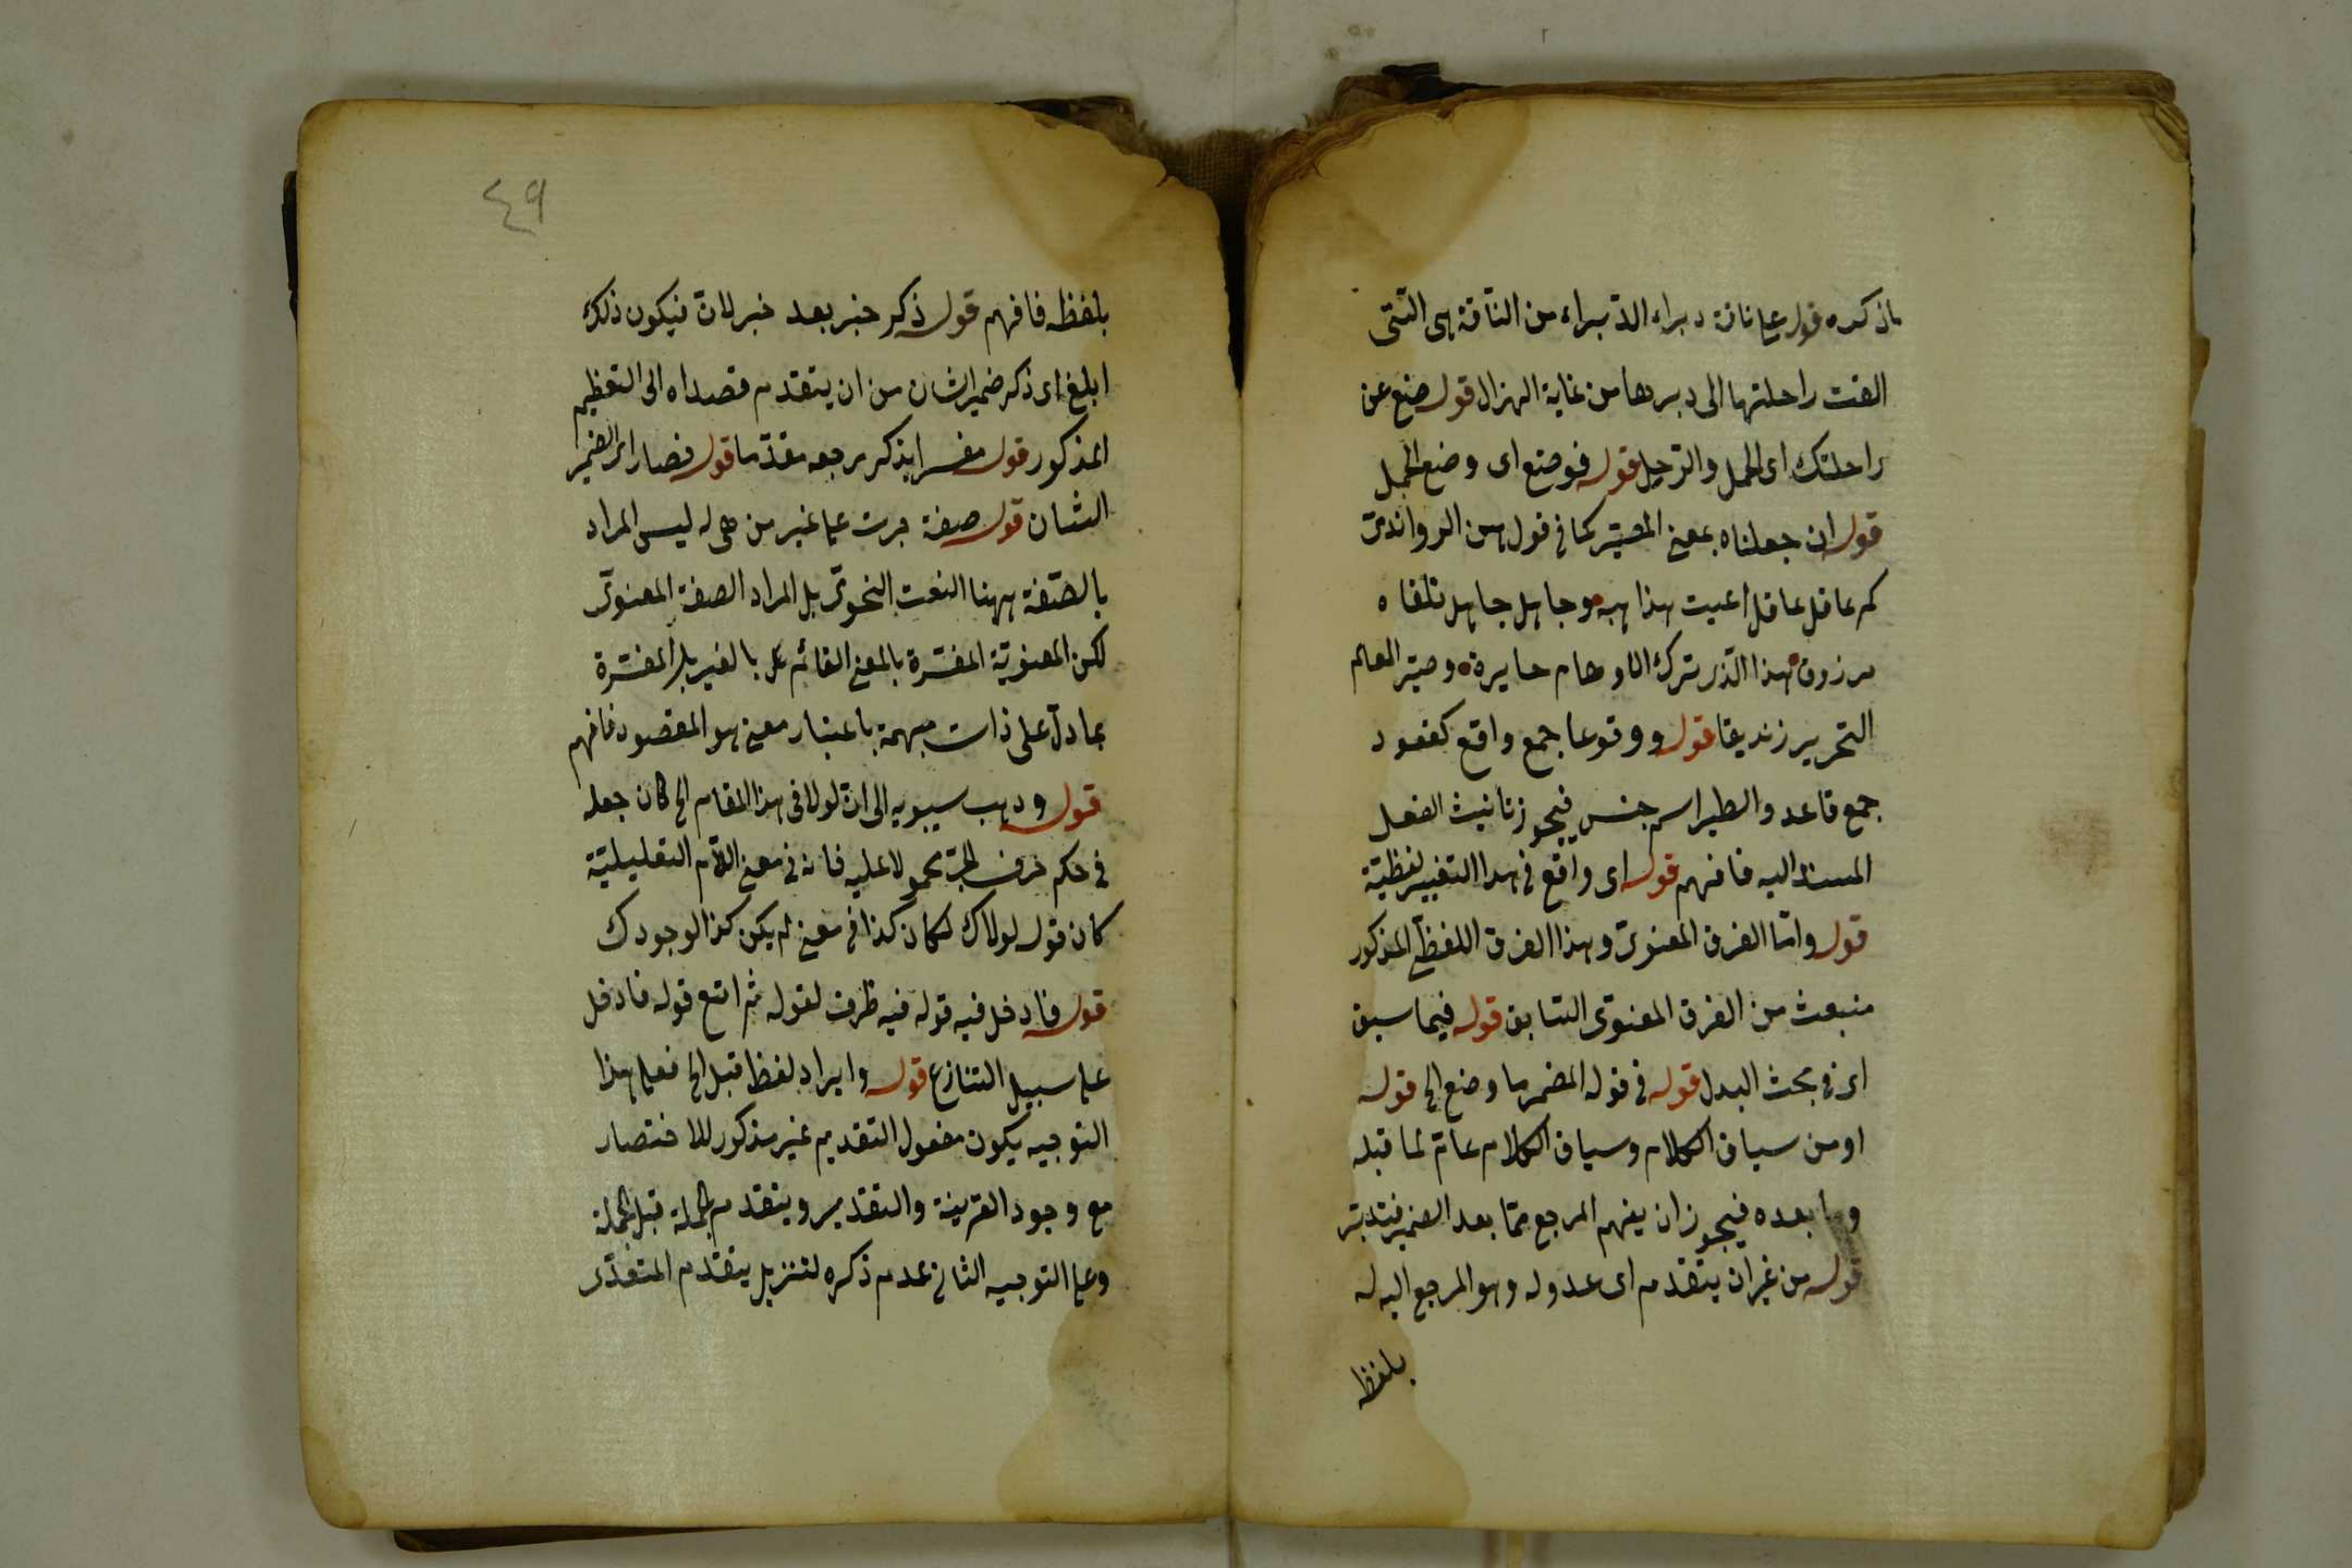 ما ذكره قوله على ناقة دبراء الدّبراء من النّاقة هى التّى
القت راحلتها الى دبرها من غاية الهزال قوله ضع عن
راحلتك اى الحمل والرّحل قوله فوضع اى وضع الحمل
قوله ان جعلناه بمعنى المصيّر كما فى قول ابن الرواندىّ
كم عاقل عاقل اعيت مذاهبه وجاهل جاهل تلقاه
مرزوقا هذا الّذى ترك الاوهام حايرة وصيّر العالم
التحرير زنديقا قوله ووقوعا جمع واقع كقعود
جمع قاعد والطير اسم جنس فيجوز تانيث الفعل
المسند اليه فافهم قوله اى واقع فى هذا التغيير لفظيّة
قوله وامّا الفرق المعنوىّ وهذا الفرق اللفظىّ المذكور
منبعث من الفرق المعنوى السّابق قوله فيما سبق
اى فى بحث البدل قوله فى قوله المضمر ما وضع الى قوله
او من سياق الكلام وسياق الكلام عامّ لما قبله
وما بعده فيجوز ان يفهم المرجع ممّا بعد الضمير فتدبّر
قوله من غير ان يتقدم اى عدوله وهو المرجع اليه له
بلفظ
٤٩
بلفظه فافهم قوله ذكر خبر بعد خبر لانّ فيكون ذلك
ابلغ اى ذكر ضمير الشان من ان يتقدم قصداه الى التعظيم
المذكور قوله مفسرا بذكر مرجعه مقدّما قوله فصار اى الضمير
الشان قوله صفة جرت على غير من هى له ليس المراد
بالصّفة ههنا النعت النحوىّ بل المراد الصفة المعنوىّ
لكن المعنويّة المفسّرة بالمعنى القائم بالغير بل المفسّرة
بما دلّ على ذات مبهمة باعتبار معنى هو المقصود فافهم
قوله وذهب سيبويه الى انّ لولا فى هذا المقام الخ كان جعله
فى حكم حرف الجرّ محمولا عليه فانه فى معنى اللّام التعليليّة
كان قوله لولاك لكان كذا فى معنى لم يكن كذا لوجودك
قوله فادخل فيه قوله فيه ظرف لقوله ثم اتبع قوله فادخل
على سبيل التنازع قوله وايراد لفظ قبل الخ فعلى هذا
التوجيه يكون مفعول التقديم غير مذكور للاختصار
مع وجود القرينة والتقدير ويتقدم الجملة قبل الجملة
وعلى التوجيه الثانى عدم ذكره لتنزيل يتقدم المتعدّى